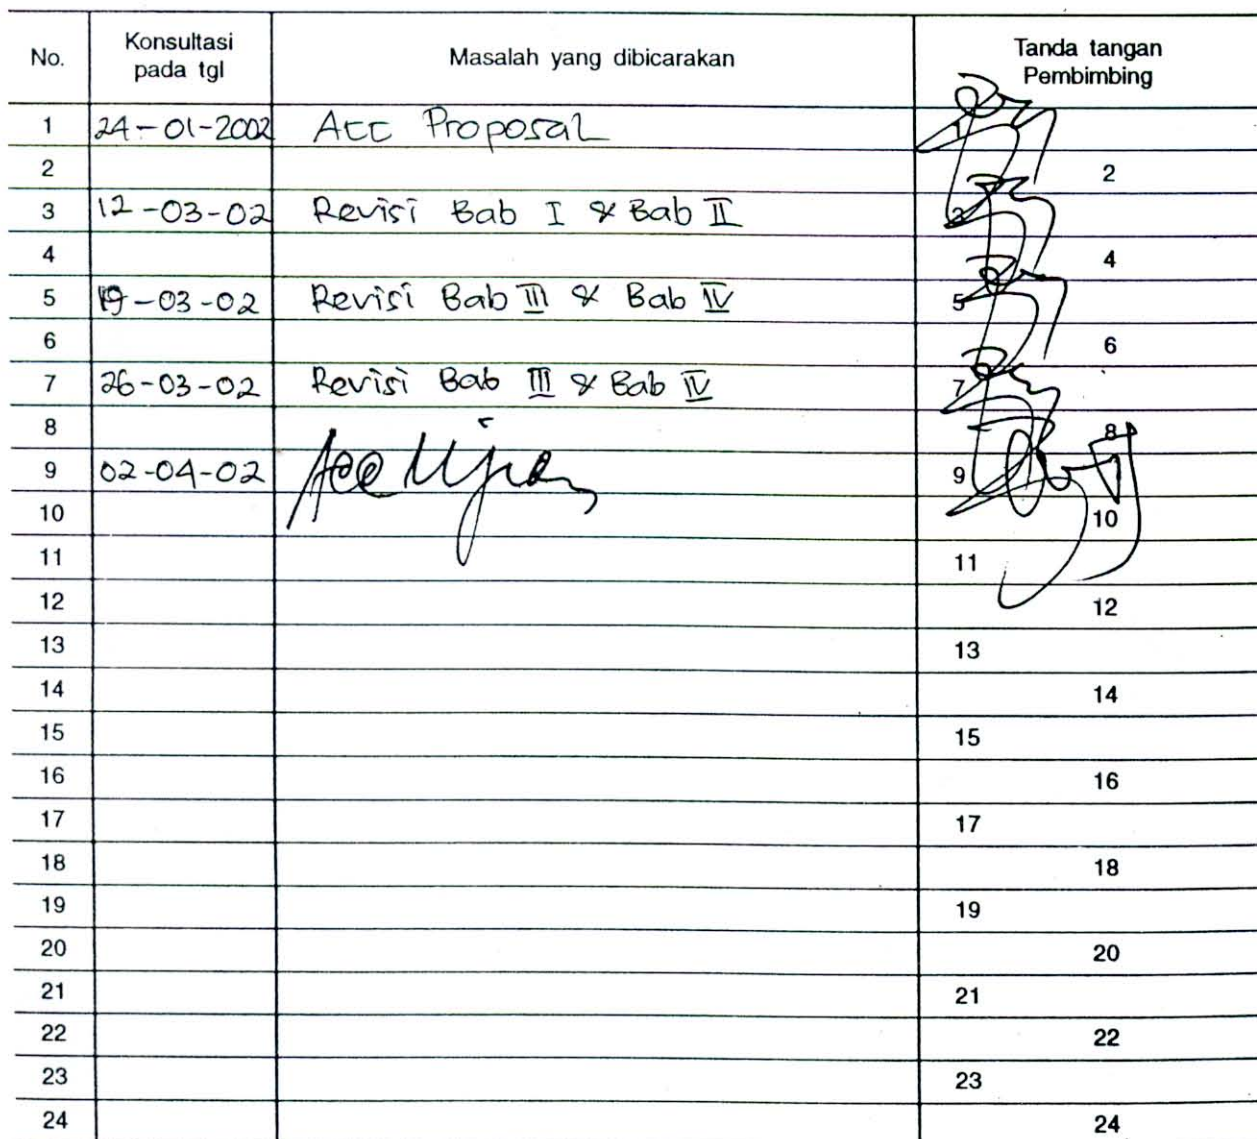 No. Konsultasi pada tgl Masalah yang dibicarakan Tanda tangan Pembimbing
1 24-01-2002 Acc Proposal 1
2 2
3 12-03-02 Revisi Bab I & Bab II 3
4 4
5 19-03-02 Revisi Bab III & Bab IV 5
6 6
7 26-03-02 Revisi Bab III & Bab IV 7
8 8
9 02-04-02 Acc Ujian 9
10 10
11 11
12 12
13 13
14 14
15 15
16 16
17 17
18 18
19 19
20 20
21 21
22 22
23 23
24 24